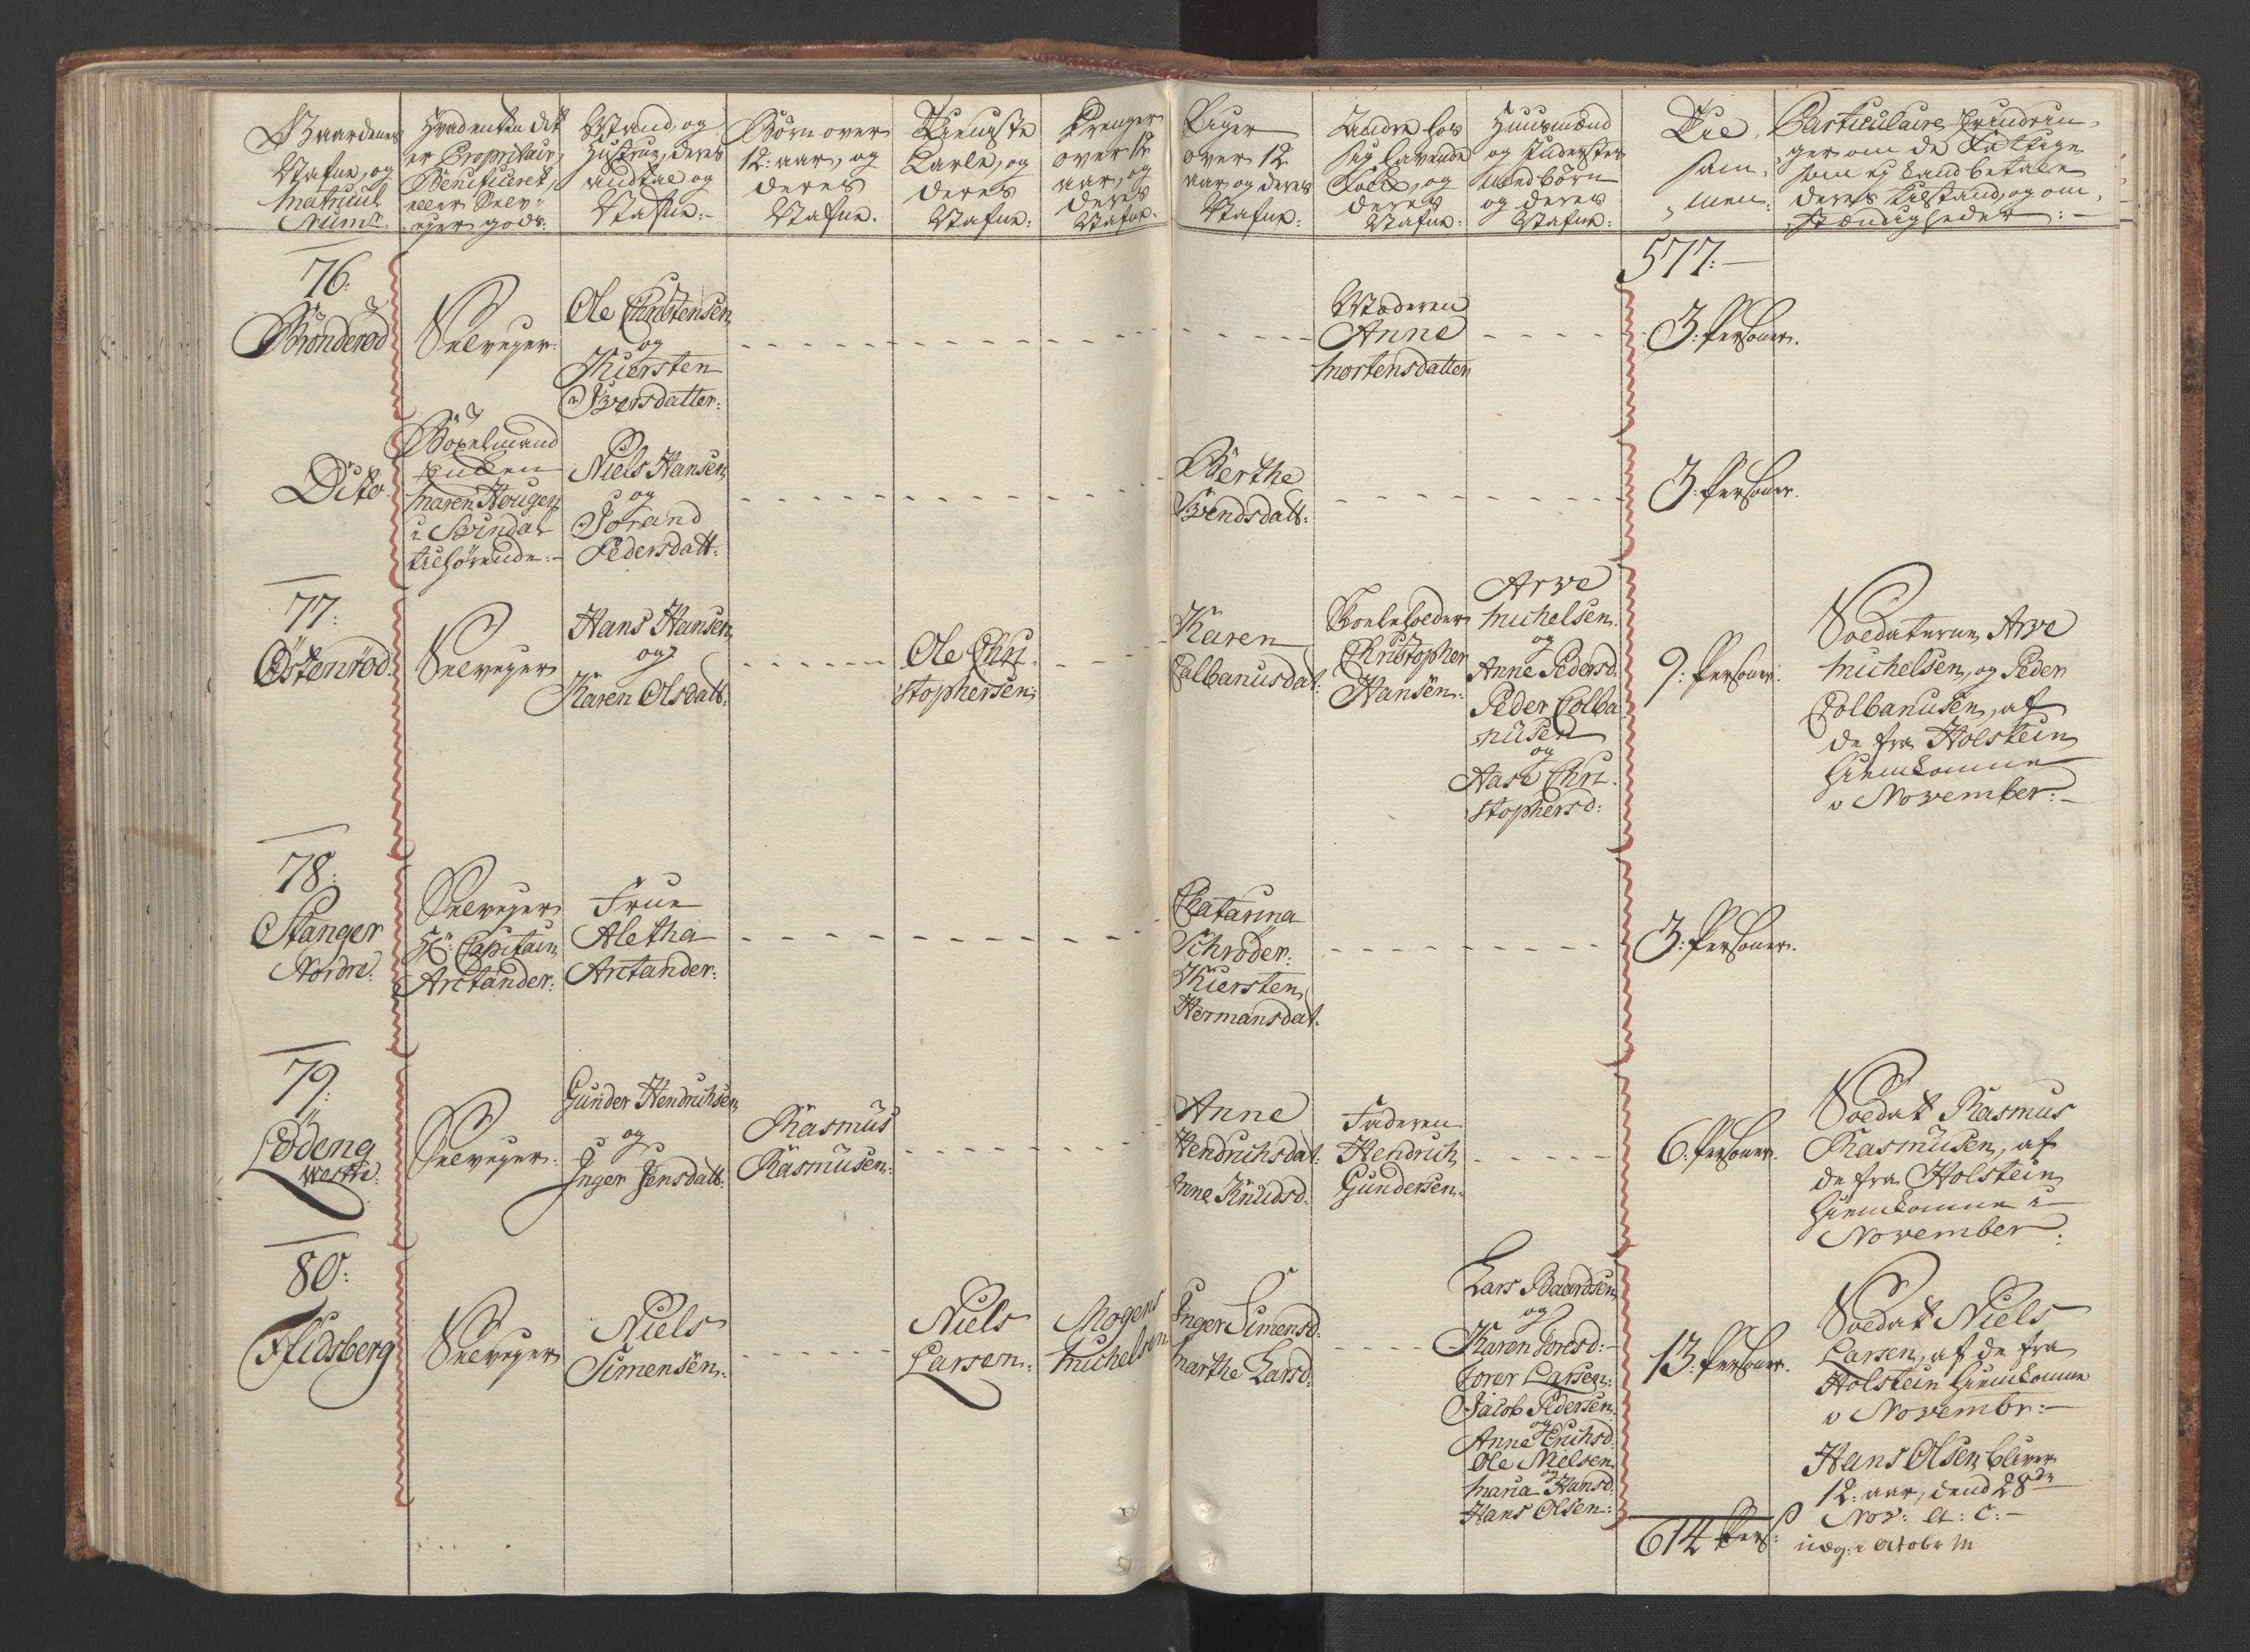 Gaardenes
Nafne, og
Matricul
Num:r
Hvad enten det
er Propritair,
Beneficeret,
eller Selv-
eyer gods:
Mand, og
Hustrue, deres
Andtal og
Nafne:-
Børn over
12: aar, og
deres
Nafne.
Tieneste
Karle, og
deres
Nafne:
Drenger
over 12
aar, og
deres
Nafne:
Piger
over 12
aar, og deres
Nafne:
Andre hos
sig havende
Folk, og
deres
Nafne:
Huusmænd
og Inderster
med børn
og deres
Nafne:
Til
sam-
men:
Particulaire Erindrin-
ger om de fattige
som ej kand betale
deres tilstand, og om-
stændigheder:-
577:-
76:
Bönderöd
Selveyer:
Ole Christensen
og
Kiersten
Iversdatter:
Moderen
Anne
Mortensdatter
3: Persohner.
Dito
Böxelmand
under
Maren Hougen
i Svindal
tilhørende:-
Niels Hansen
og
Jorand
Pedersdatt:
Berthe
Svendsdatt:
3: Persohner.
77:
Östenröd
Selveyer
Hans Hansen
og
Karen Olsdatt:
Ole Chri
stophersen:
Karen
Calbanusdat:
Christopher
Hansen:
Arve
Michelsen.
og
Anne Pedersd:
Peder Colba
nusen
og
Aase Chri
stophersd:
9: Persohner:
Soldaterne Arve
Michelsen, og Peder
Colbanusen, af
de fra Holstein
Hiemkomne
i November:-
78:
Stanger
Nordre:
Selveyer
Hr: Capitain
Arctander:
Frue
Aletha
Arctander:
Catarina
Schröder:
Kiersten
Hermansdat:
3: Persohner.
79:
Lödeng
Westre:
Selveyer:
Gunder Hendrichsen
og
Inger Jensdatt:
Rasmus
Rasmusen:
Anne
Hendrichsdat:
Anne Knudsd:
Faderen
Hendrich
Gundersen:
6: Persohner.
Soldat Rasmus
Rasmusen, af
de fra Holstein
Hiemkomne i
November:
80:
Fludsberg
Selveyer
Niels
Simensen:
Niels
Larsen:
Mogens
Michelsen
Inger Simensd:
Marthe Larsd:
Lars Baardsen
og
Karen Toresd:
Torer Larsen:
Jacob Pedersen
og
Anne Erichsd:
Ole Nielsen
og
Maria Hansd:
Hans Olsen:
13: Persohner.
Soldat Niels
Larsen, af de fra
Holstein Hiemkomne
i Novembr:-
Hans Olsen bliver
12: aar, dend 28de
Nov: a: c:-
614 Pers: